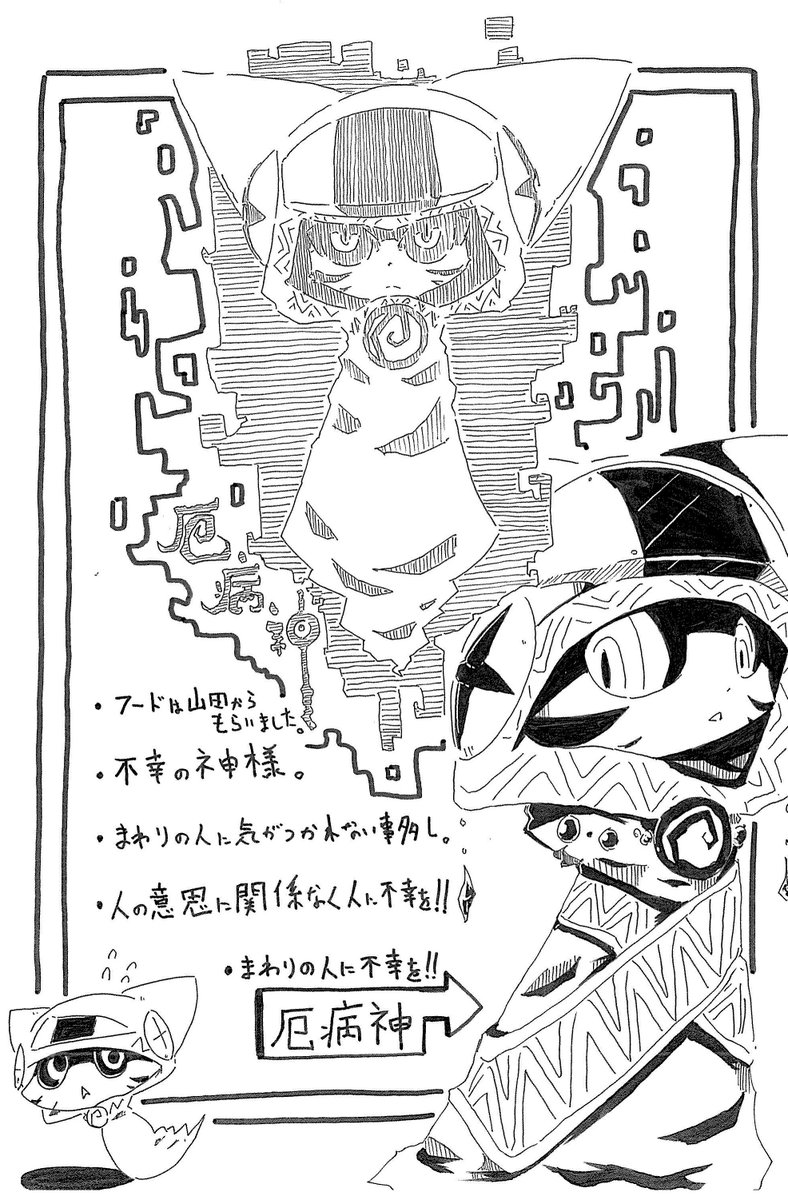 厄病神
・フードは山田から
もらいました。
・不幸の神様。
・まわりの人に気がつかれない事多し。
・人の意思に関係なく人に不幸を!!
・まわりの人に不幸を!!
厄病神